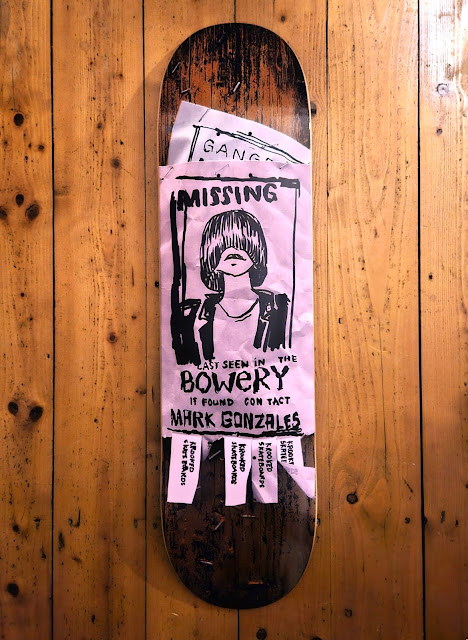 GANG
MISSING
LAST SEEN iN THE
BOWERY
iF FOUND CONTACT
MARK GONZALES
KROOKED
SKATEBOARDS
KROOKED
SKATEBOARDS
KROOKED
SKATEBOARDS